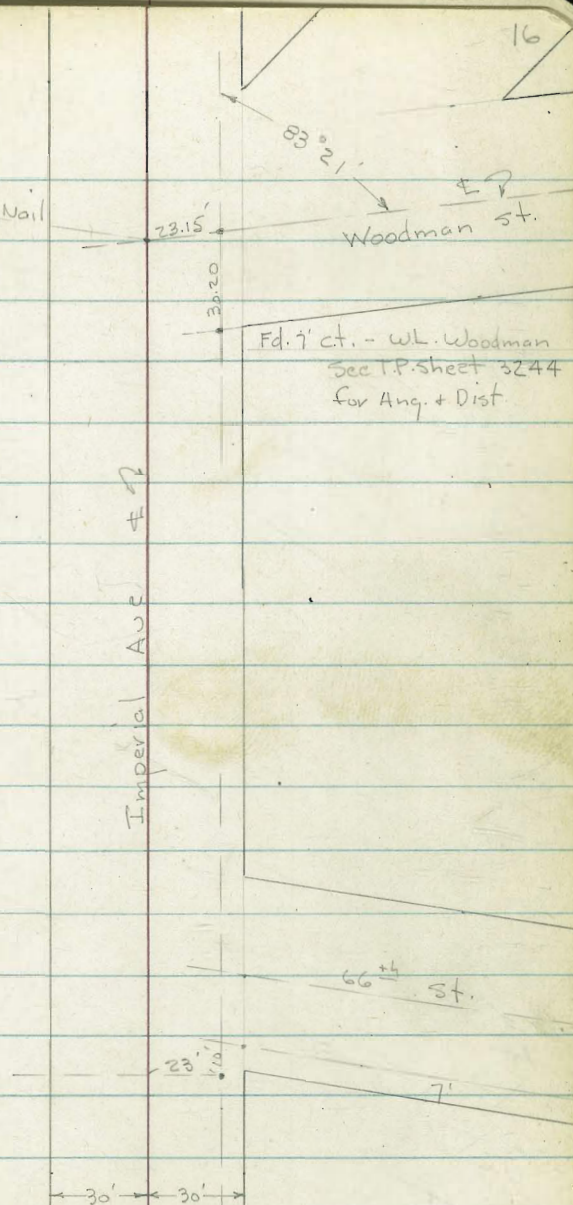 16
83° 21'
℄
Nail
23.15'
Woodman St.
30.20
Fd. 7' ct. - W.L. Woodman
See T.P. Sheet 3244
for Ang. & Dist.
Imperial Ave ℄
66th St.
23'
10'
7'
30'
30'